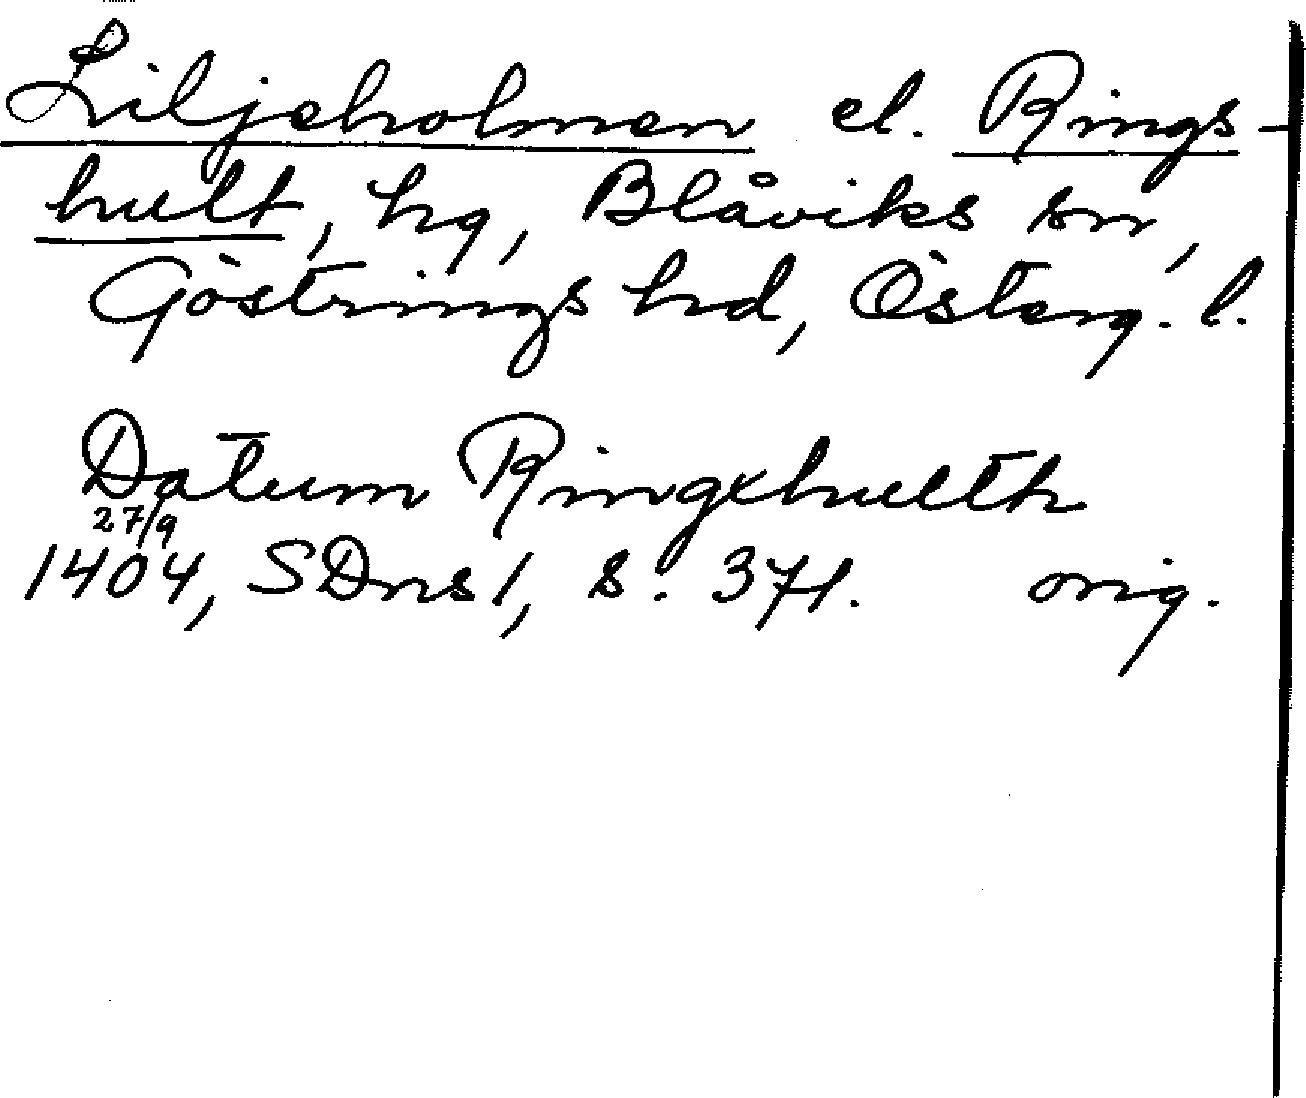 Liljeholmen el. Rings-
hult, hg, Blåviks sn,
Göstrings hd, Österg. l.
Datum Ringxhullth
27/9
1404, SDns 1, s. 371. orig.